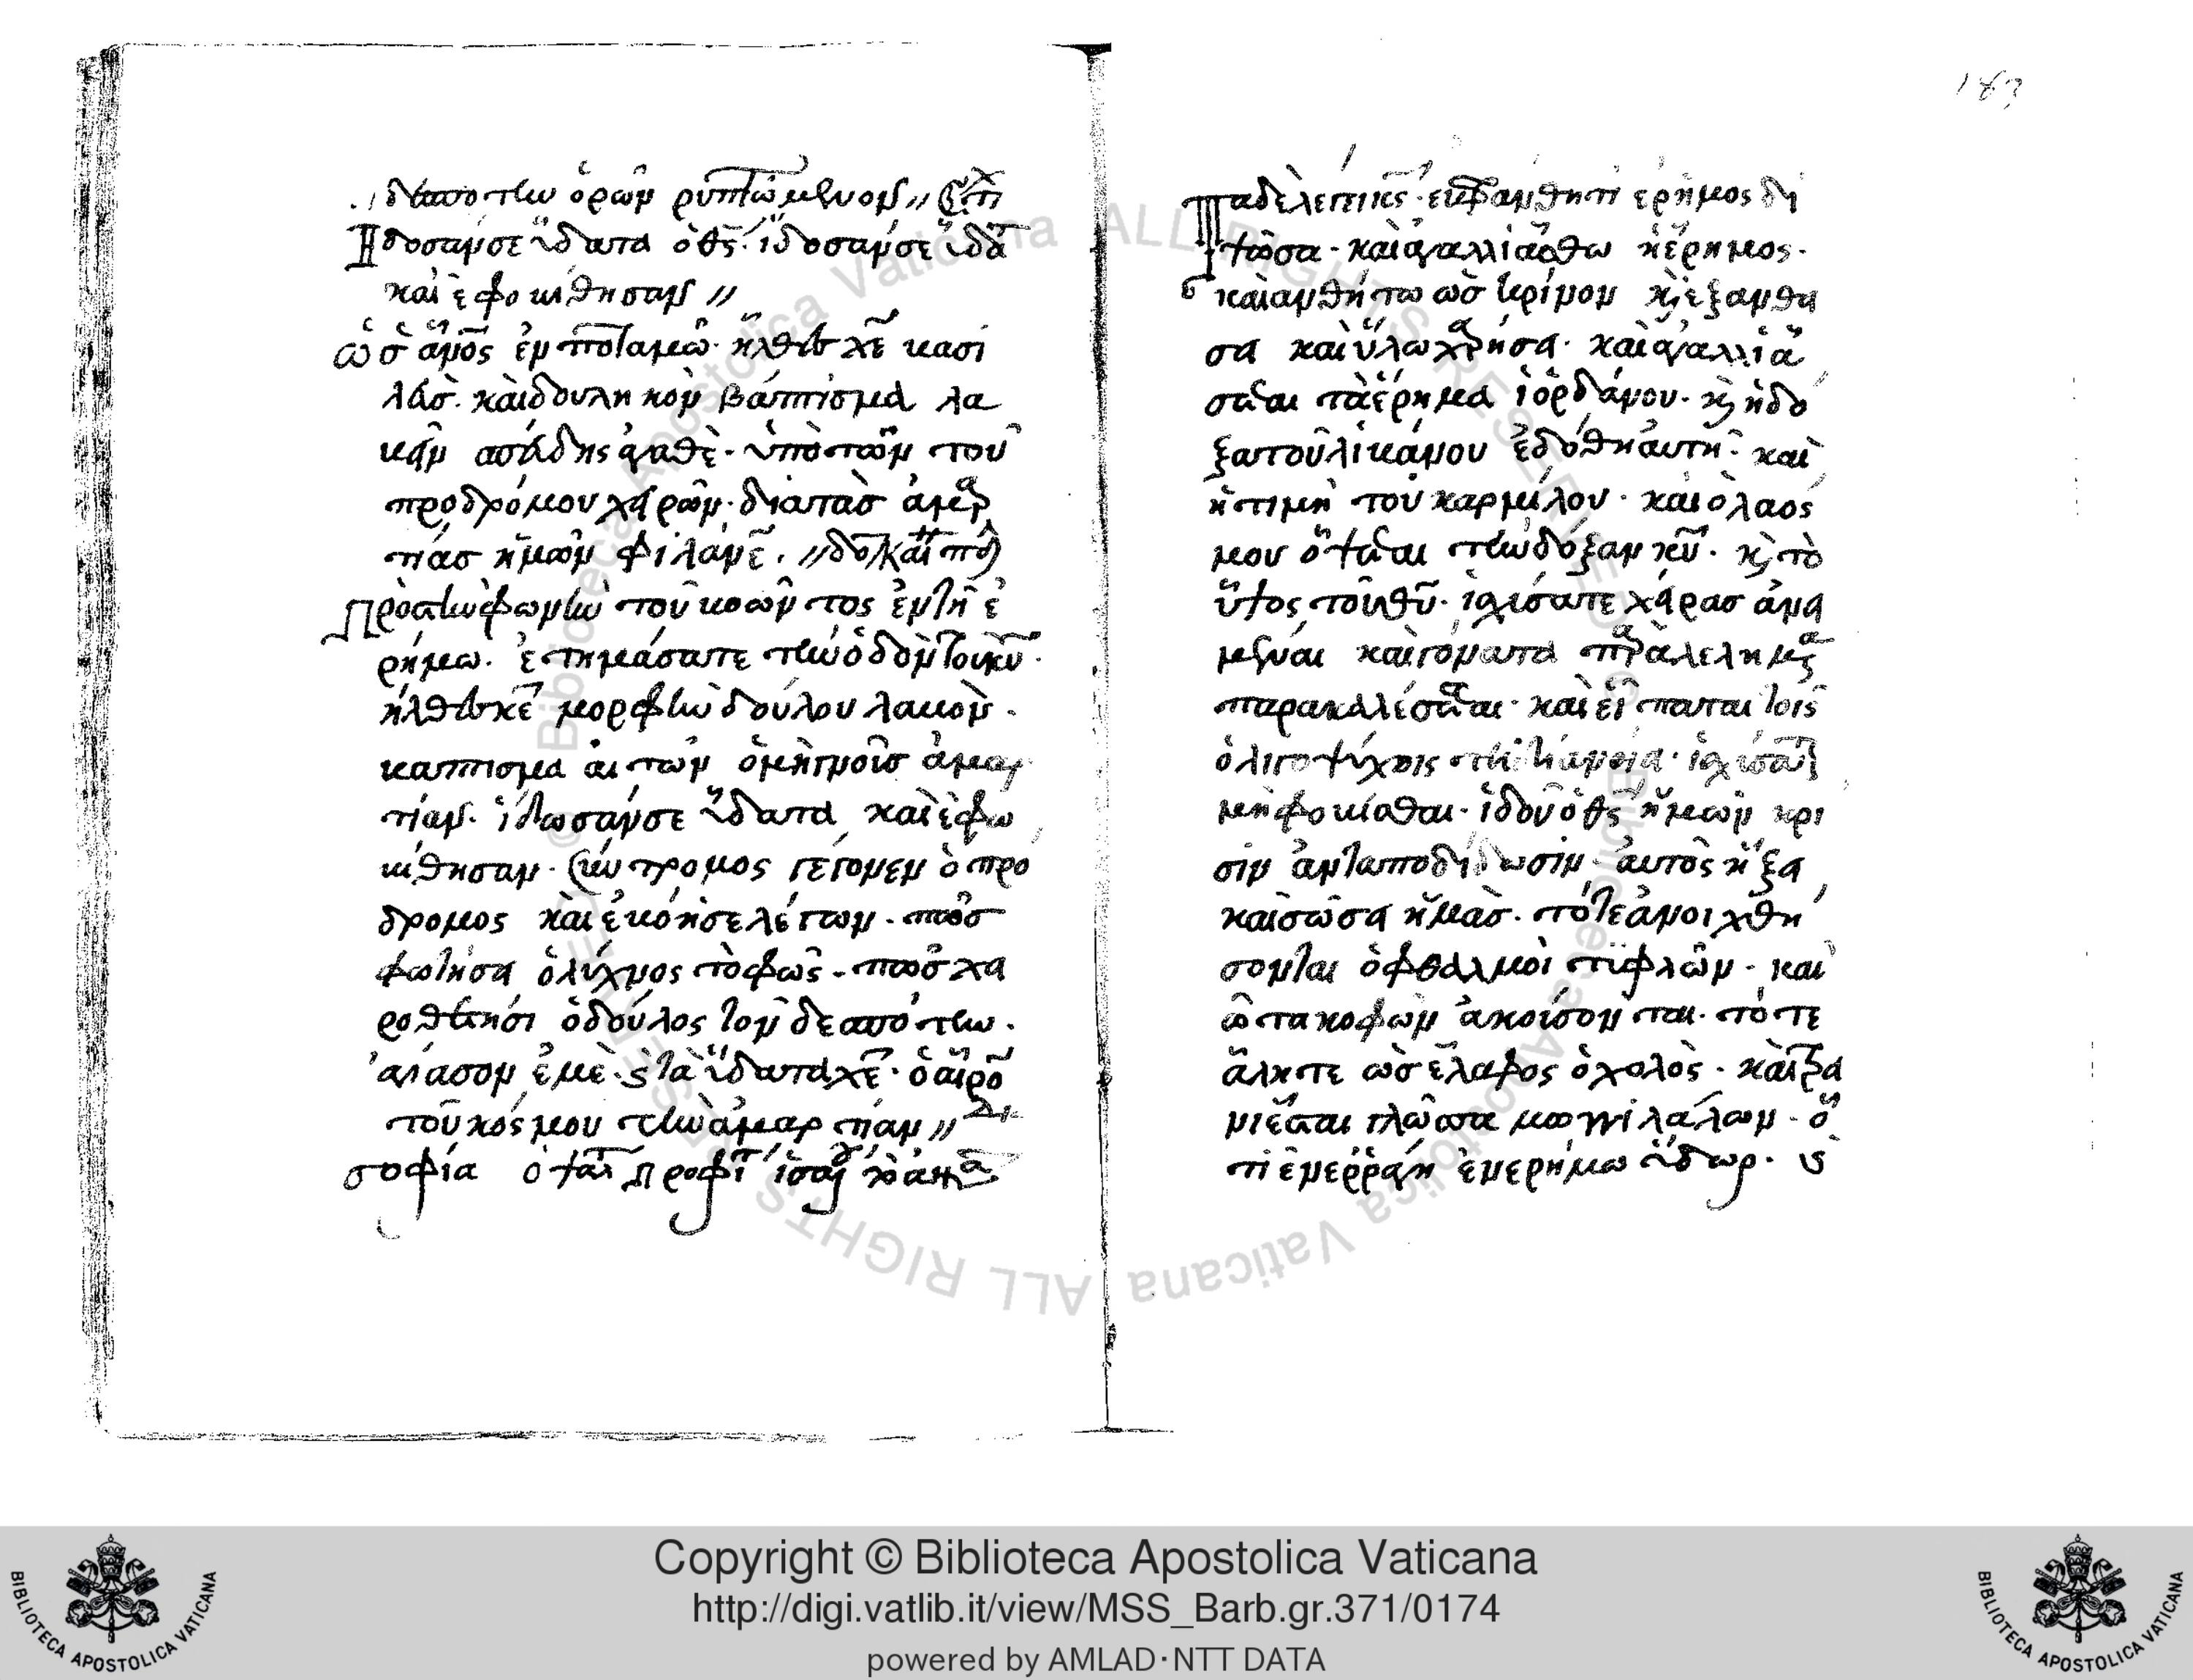 δεσποτην ὁρῶν ρυπτώμενον // στιχ
Ηδοσάν σε ὕδατα ὁ θς· ἱδοσάν σε ὕδα
καὶ ἐφοβίθησαν //
ὡσ ἄνος ἐν ποταμῶ· ἦλθες χε βασι
λεῦσ· καὶ δουληκὸν βάπτισμα λα
βῆν σπεύδης ἀγαθὲ· ὑπὸ τῶν τοῦ
προδρόμου χειρῶν· διὰ τὰσ ἁμαρ
τίασ ἡμῶν φιλάνε· // δο/ καὶ
Πρὸσ τὴν φωνὴν τοῦ βοῶντος ἐν τῆ ἐ
ρήμω· ἑτημάσατε τὴν ὁδὸν τοῦ κυ·
ἦλθες κε μορφὴν δούλου λαβὸν·
βαπτισμα αιτῶν ὁ μὴ γνοῦσ ἁμαρ
τίαν· ἱδωσάν σε ὕδατα καὶ ἐφω
βίθησαν· σύντρομος γέγονεν ὁ προ
δρομος καὶ ἐβόησε λέγων· πῶσ
φωτήσει ὁ λύχνος τὸ φῶς· πῶσ χει
ροθετήσι ὁ δούλος τὸν δεσπότην·
ἁγίασον ἐμὲ· κ τὰ ὕδατα χε· ὁ αἴρο
τοῦ κόσμου τὴν ἁμαρτίαν //
σοφία ὁ ψαλ προφι ἱσαΐ τὸ ἀνα
183
Τάδε λέγει κς· εὐφρανθητι ερήμος δι
ψῶσα· καὶ ἀγαλλιάσθω ἡ ἔρημος·
καὶ ανθήτω ὡσ κρίνον κ ἐξανθη
σει καὶ ὑλωχαρήσει· καὶ ἀγαλλιά
σεται τὰ ἔρημα ἱορδάνου· κ ἡ δό
ξα τοῦ λιβάνου ἐδόθη ἀυτῆ· καὶ
ἡ τιμὴ τοῦ καρμίλου· καὶ ὁ λαός
μου ὄψεται τὴν δόξαν κυ· κ τὸ
ὕψος τοῦ θυ· ἱσχύσατε χεῖρασ ἀνει
μέναι καὶ γόνατα παραλελημενα
παρακαλέσαται· καὶ εἴπαται τοῖς
ὀλιγοψύχοις τῆ διανοία· ἱσχύσατε
μὴ φοβίσθαι· ἱδοῦ ὁ θς ἡμῶν κρι
σιν ἀνταποδίδωσιν· ἀυτὸς ἥξει
καὶ σώσει ἡμὰσ· τότε ἀνοιχθή
σονται ὀφθαλμοὶ τυφλῶν· καὶ
ὦτα κοφῶν ἀκοίσονται· τότε
ἄλητε ὡσ ἔλαφος ὁ χολὸς· καὶ τρα
νὶ ἔσται γλῶσσα μογγιλάλων· ὅ
τι ἐνερράγη ἐν ερήμω ὕδωρ· κ
Copyright © Biblioteca Apostolica Vaticana
http://digi.vatlib.it/view/MSS_Barb.gr.371/0174
powered by AMLAD·NTT DATA